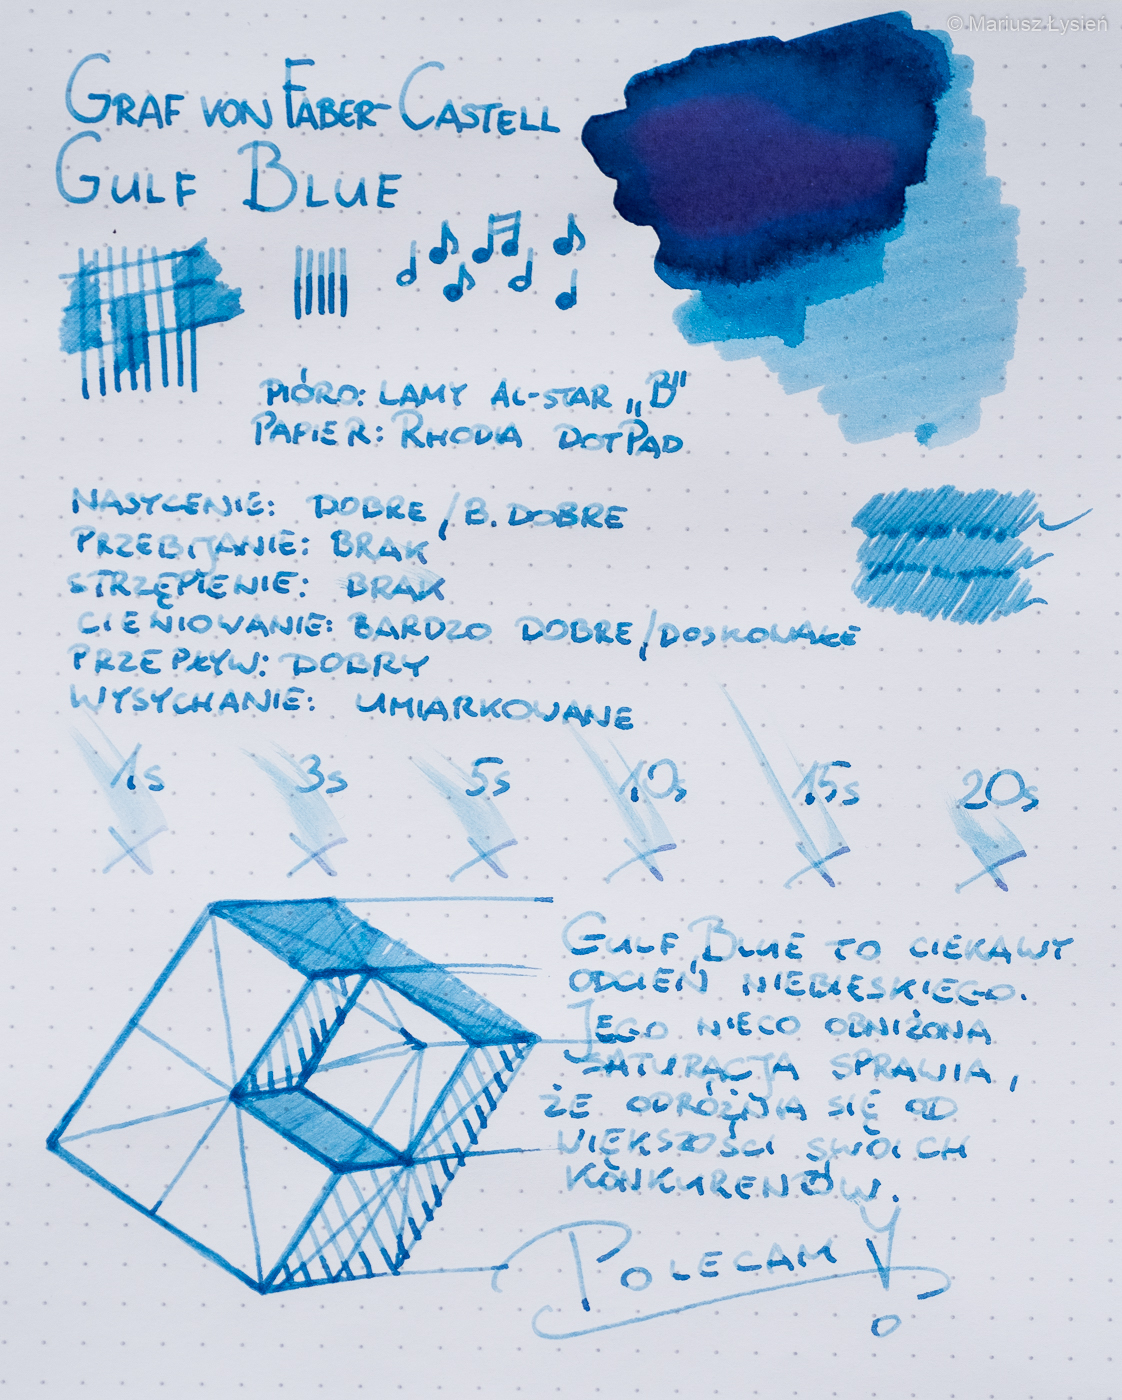 © Mariusz Łysień
GRAF VON FABER-CASTELL
GULF BLUE
PIÓRO: LAMY AL-STAR „B"
PAPIER: RHODIA DOTPAD
NASYCENIE: DOBRE / B. DOBRE
PRZEBIJANIE: BRAK
STRZĘPIENIE: BRAK
CIENIOWANIE: BARDZO DOBRE/DOSKONAŁE
PRZEPŁYW: DOBRY
WYSYCHANIE: UMIARKOWANE
1s 3s 5s 10s 15s 20s
GULF BLUE TO CIEKAWY
ODCIEŃ NIEBIESKIEGO.
JEGO NIECO OBNIŻONA
SATURACJA SPRAWIA,
ŻE ODRÓŻNIA SIĘ OD
WIĘKSZOŚCI SWOICH
KONKURENTÓW.
POLECAM!